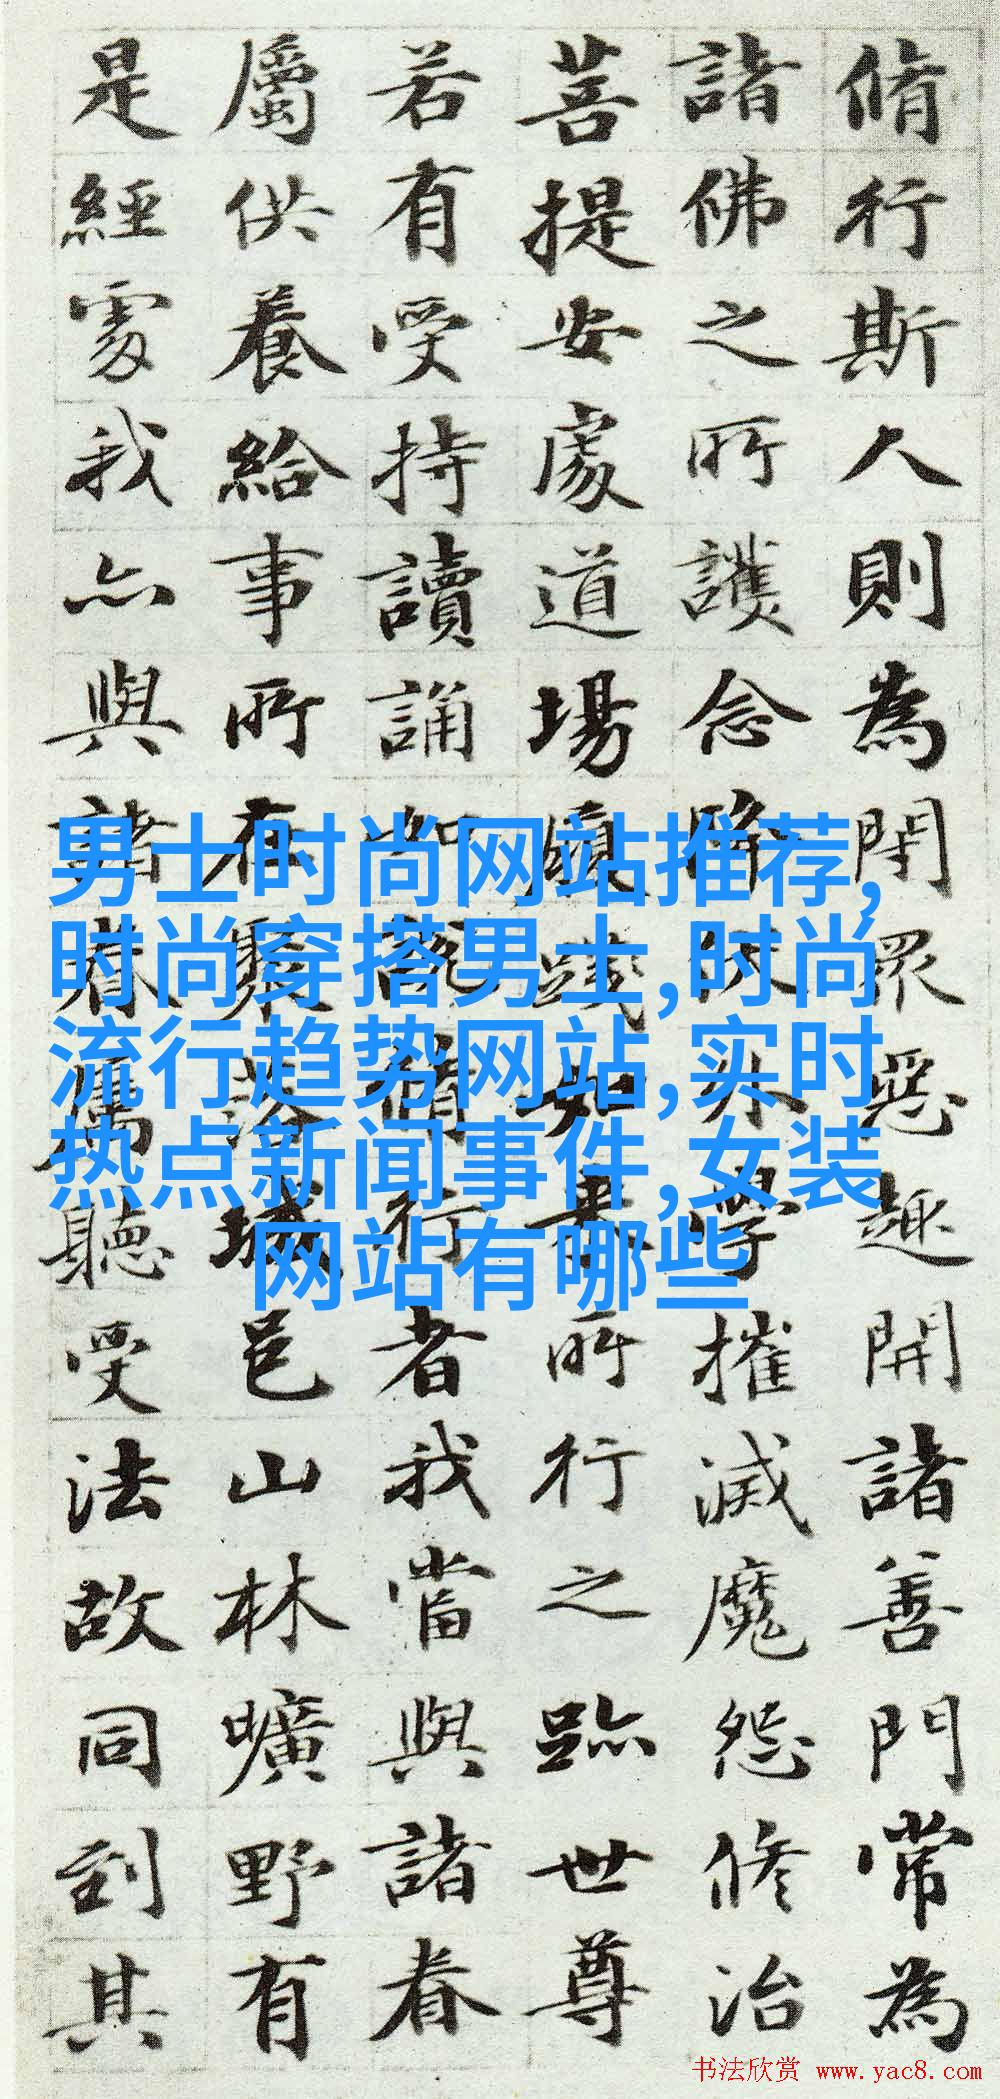 脩行斯人則為閇眾惡趣開諸善門常為
諸佛之所護念降伏外學摧滅魔怨修治
菩提安處道場履踐如來所行之跡世尊
若有受持讀誦如說脩行者我當與諸眷
屬供養給事所有聚落城邑山林曠野有
是經處我亦與諸眷屬聽受法故同到其
男士时尚网站推荐,
时尚穿搭男士,时尚
流行趋势网站,实时
热点新闻事件,女装
网站有哪些
书法欣赏 www.yac8.com